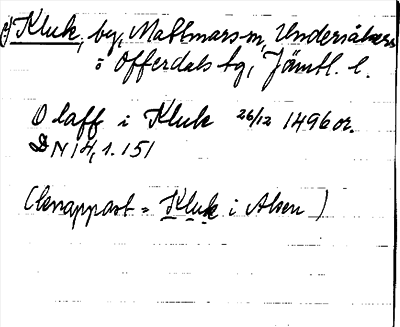 Kluk, by, Mattmars sn, Undersåkers
o Offerdals tg, Jämtl. l.
Olaff i Kluk 26/12 1496 or.
DN 14, 1. 151
(knappast = Kluk i Alsen)